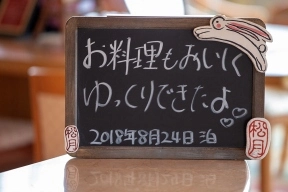 お料理もおいしく
ゆっくりできたよ
2018年8月24日 泊
松月
松月